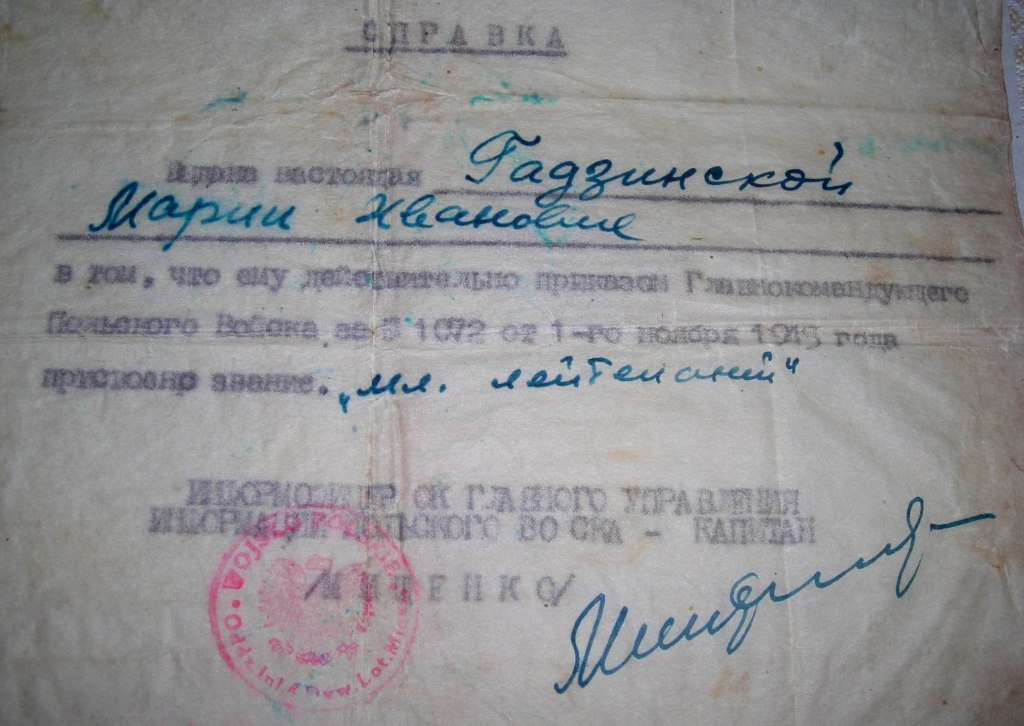 СПРАВКА
Выдана настоящая Гадзинской
Марии Ивановне
в том, что ему действительно приказом Главнокомандующего
Польского Войска за № 1072 от 1-го ноября 1945 года
присвоено звание. „мл. лейтенант"
ИНФОРМОФИЦЕР ОК ГЛАВНОГО УПРАВЛЕНИЯ
ИНФОРМАЦИИ ПОЛЬСКОГО ВОЙСКА - КАПИТАН
/МИТЕНКО/
WOJSKO POLSKIE
Oddz. Inf. 4 Dyw. Lot.